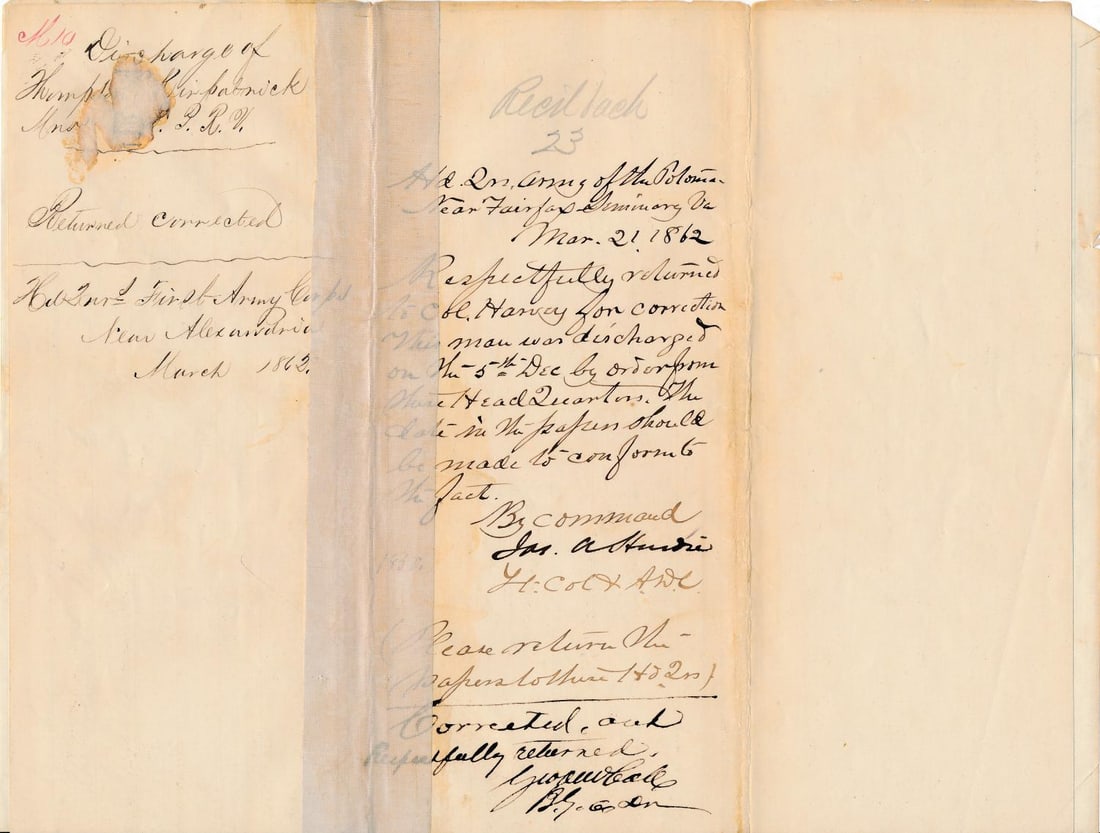 M 10
Discharge of
Kirkpatrick
P. R. V.
Returned corrected
Hd Qurs First Army Corps
Near Alexandria
March 1862.
Recd back
23
Hd. Qrs. Army of the Potomac
Near Fairfax Seminary Va
Mar. 21. 1862
Respectfully returned
to Col. Harvey for correction
This man was discharged
on the 5th Dec by order from
these Head Quarters. The
date in the papers should
be made to conform to
the fact.
By command
Jas. A Hardie
Lt. Col & A.D.C.
(Please return the
papers to these Hd Qrs)
Corrected, and
Respectfully returned.
Geo A McCall
B. G.